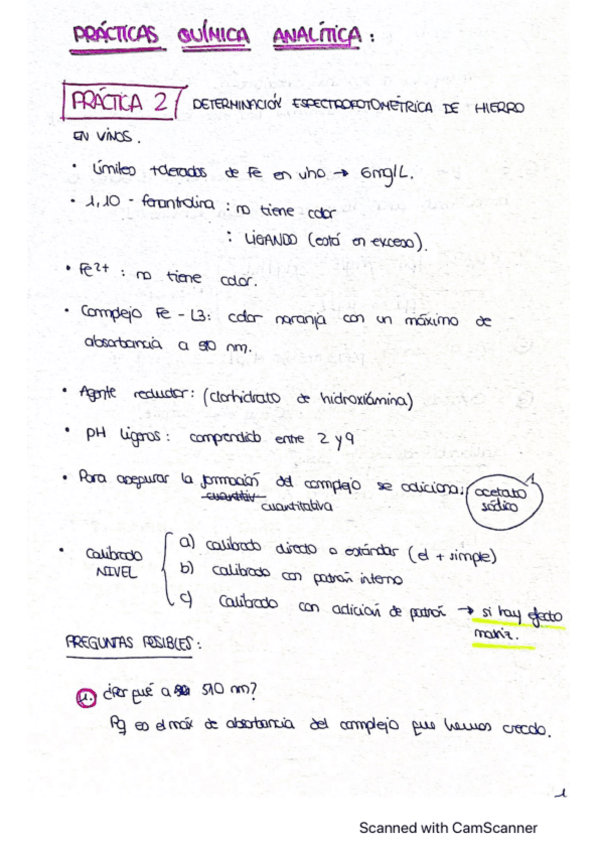 PRÁCTICAS QUÍMICA ANALÍTICA:
PRÁCTICA 2 DETERMINACIÓN ESPECTROFOTOMÉTRICA DE HIERRO
EN VINOS.
• Límites tolerados de Fe en vino → 6mg/L.
• 1,10 - fenantrolina : no tiene color
: LIGANDO (está en exceso).
• Fe2+ : no tiene color.
• Complejo Fe - L3: color naranja con un máximo de
absorbancia a 510 nm.
• Agente reductor: (clorhidrato de hidroxiamina)
• PH ligeros: comprendido entre 2 y 9
• Para asegurar la formación del complejo se adiciona: acetato
cuantitativa sódico
• Calibrado
NIVEL
a) calibrado directo o estándar (el + simple)
b) calibrado con patrón interno
c) Calibrado con adición de patrón → si hay efecto
matriz.
PREGUNTAS POSIBLES:
1. ¿Por qué a 510 nm?
Pq es el máx de absorbancia del complejo que hemos creado.
1
Scanned with CamScanner